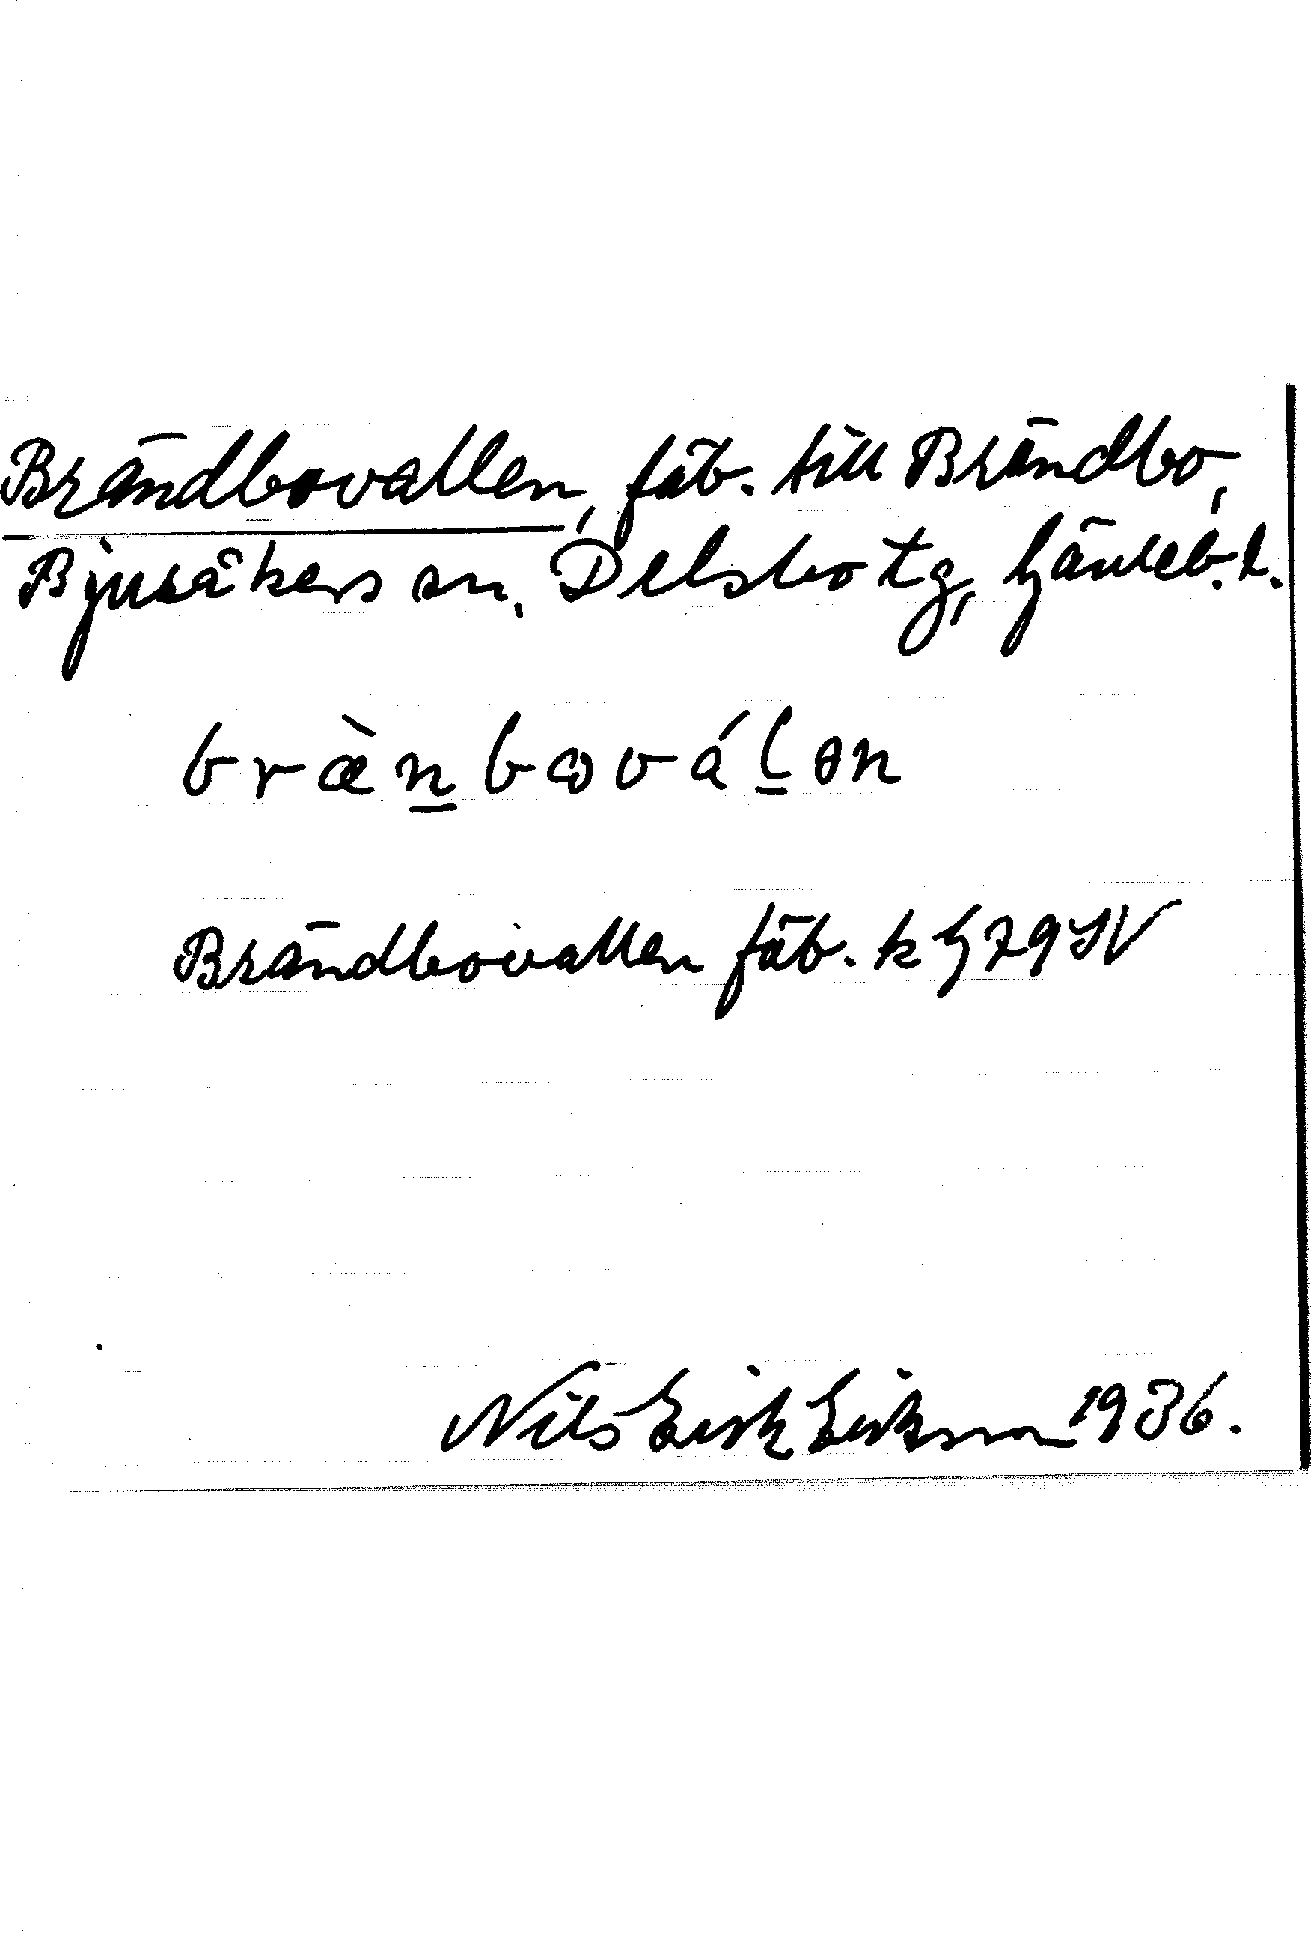 Brändbovallen, fäb. till Brändbo,
Bjuråkers sn. Delsbo tg, Gävleb. l.
bræ̀n̲bωvál̲ən
Brändbovallen fäb. k G 79 SV
Nils Erik Eriksson 1936.